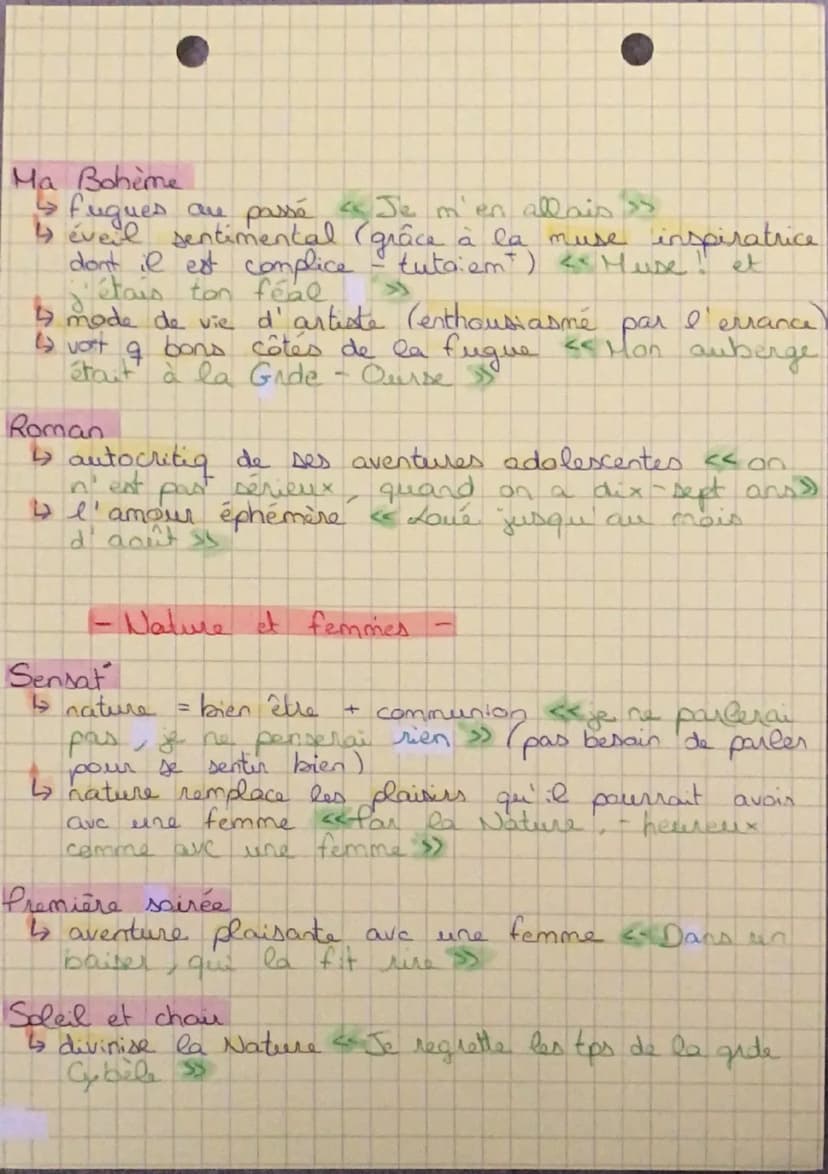 Ma Bohème
↳ fugues au passé << Je m'en allais >>
↳ éveil sentimental (grâce à la muse inspiratrice
dont il est complice - tutoiemᵗ) << Muse ! et
j'étais ton féal >>
↳ mode de vie d'artiste (enthousiasmé par l'errance)
↳ voit q bons côtés de la fugue << Mon auberge
était à la Grde-Ourse >>
Roman
↳ autocritiq de ses aventures adolescentes << on
n'est pas sérieux, quand on a dix-sept ans >>
↳ l'amour éphémère << Loué jusqu'au mois
d'août >>
- Nature et femmes -
Sensat°
↳ nature = bien être + communion << je ne parlerai
pas, je ne penserai rien >> (pas besoin de parler
pour se sentir bien)
↳ nature remplace les plaisirs qu'il pourrait avoir
avc une femme << Par la Nature, - heureux
comme avc une femme >>
Première soirée
↳ aventure plaisante avc une femme << Dans un
baiser, qui la fit rire >>
Soleil et chair
↳ divinise la Nature << Je regrette les tps de la grde
Cybèle >>